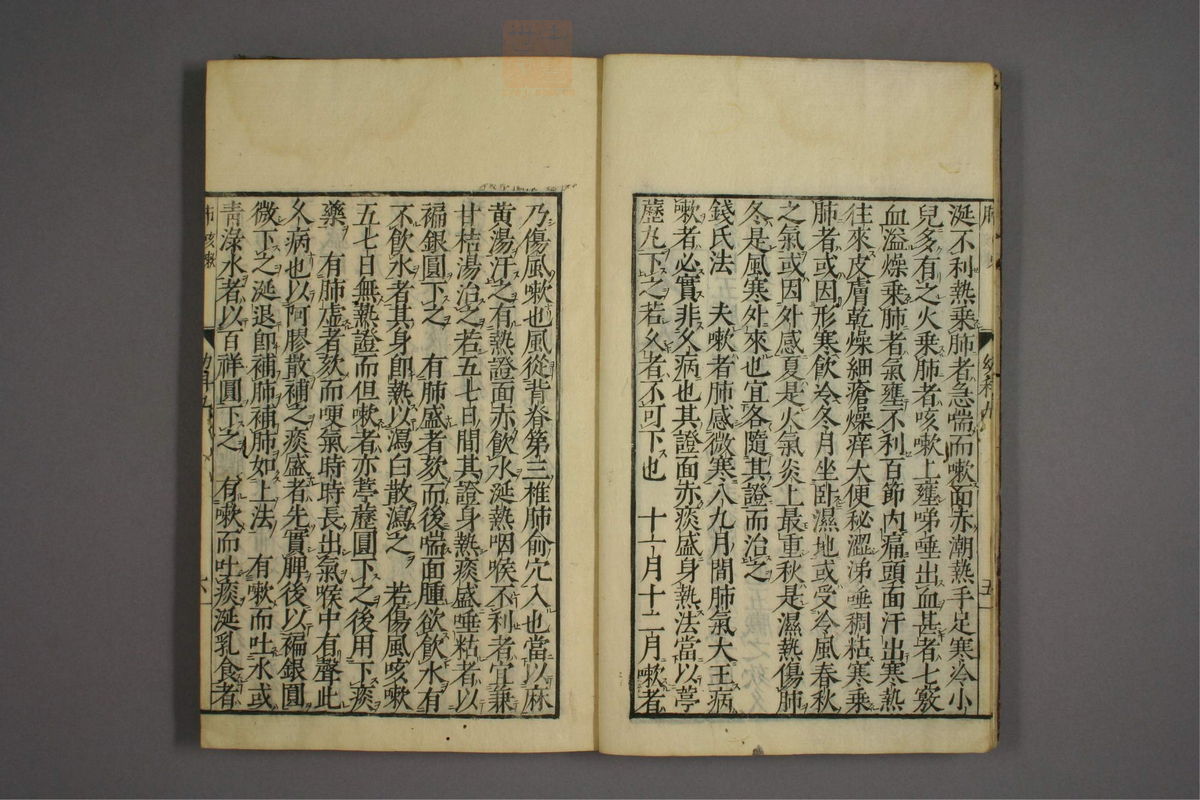 涎不利熱乗肺者急喘而嗽面赤潮熱手足寒冷小
兒多有之火乗肺者咳嗽上壅啼唾出血甚者七竅
血溢燥乗肺者氣壅不利百節内痛頭面汗出寒熱
往來皮膚乾燥細瘡燥痒大便秘澀涕唾稠粘寒乗
肺者或因形寒飲冷冬月坐卧濕地或受冷風春秋
之氣或因外感夏是火氣炎上最重秋是濕熱傷肺
冬是風寒外來也宜各隨其證而治之
錢氏法　夫嗽者肺感微寒八九月間肺氣大王病
嗽者必實非久病也其證面赤痰盛身熱法當以葶
藶丸下之若久者不可下也　十一月十二月嗽者
五
乃傷風嗽也風從背脊第三椎肺俞穴入也當以麻
黄湯汗之有熱證面赤飲水涎熱咽喉不利者宜兼
甘桔湯治之若五七日間其證身熱痰盛唾粘者以
褊銀圓下之　有肺盛者欬而後喘面腫欲飲水有
不飲水者其身即熱以瀉白散瀉之　若傷風咳嗽
五七日無熱證而但嗽者亦葶藶圓下之後用下痰
藥　有肺虚者欬而哽氣時時長出氣喉中有聲此
久病也以阿膠散補之痰盛者先實脾後以褊銀圓
微下之涎退即補肺補肺如上法　有嗽而吐水或
青淥水者以百祥圓下之　有嗽而吐痰涎乳食者
六